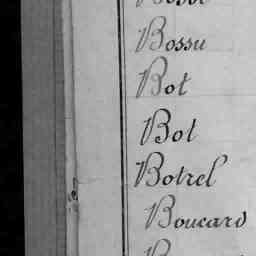 Bossu
Bot
Bot
Botrel
Boucard